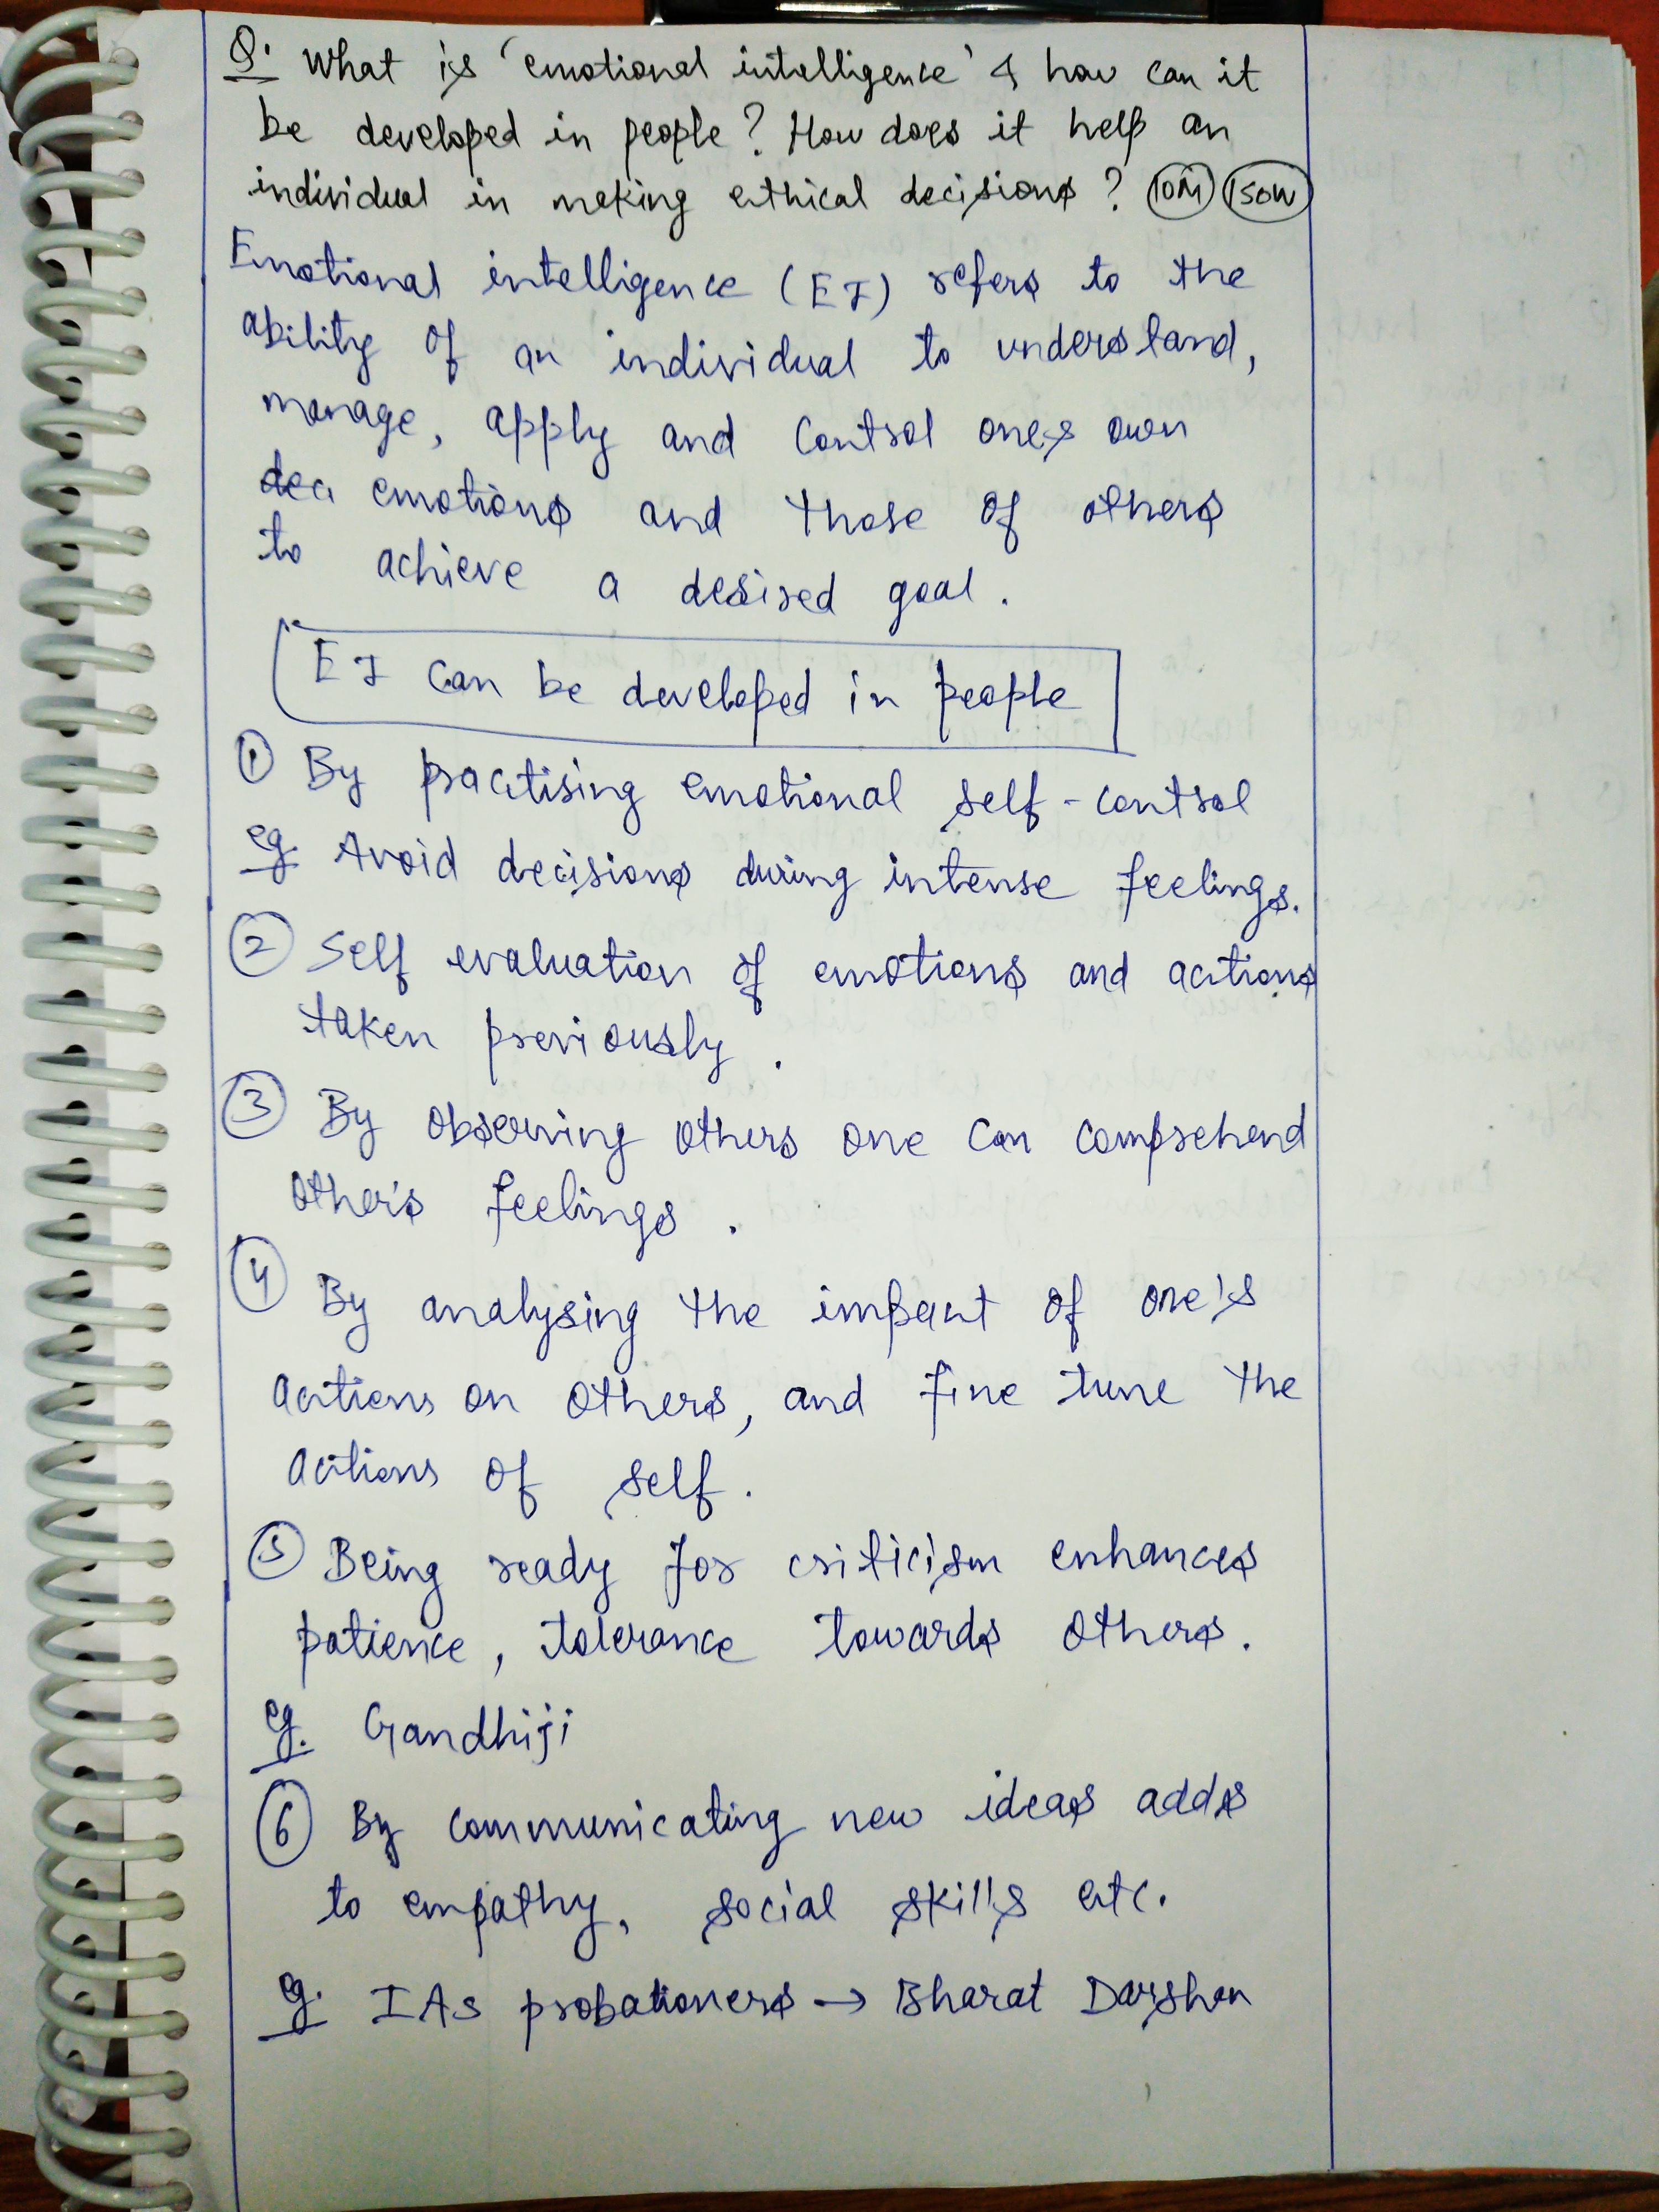 Q. What is 'emotional intelligence' & how can it
be developed in people? How does it help an
individual in making ethical decisions? 10M 150W
Emotional intelligence (EI) refers to the
ability of an individual to understand,
manage, apply and control one's own
emotions and those of others
to achieve a desired goal.
EI can be developed in people
① By practising emotional self-control
eg. Avoid decisions during intense feelings.
② Self evaluation of emotions and actions
taken previously.
③ By observing others one can comprehend
other's feelings.
④ By analysing the impact of one's
actions on others, and fine tune the
actions of self.
⑤ Being ready for criticism enhances
patience, tolerance towards others.
eg. Gandhiji
⑥ By communicating new ideas adds
to empathy, social skills etc.
eg. IAS probationers → Bharat Darshan